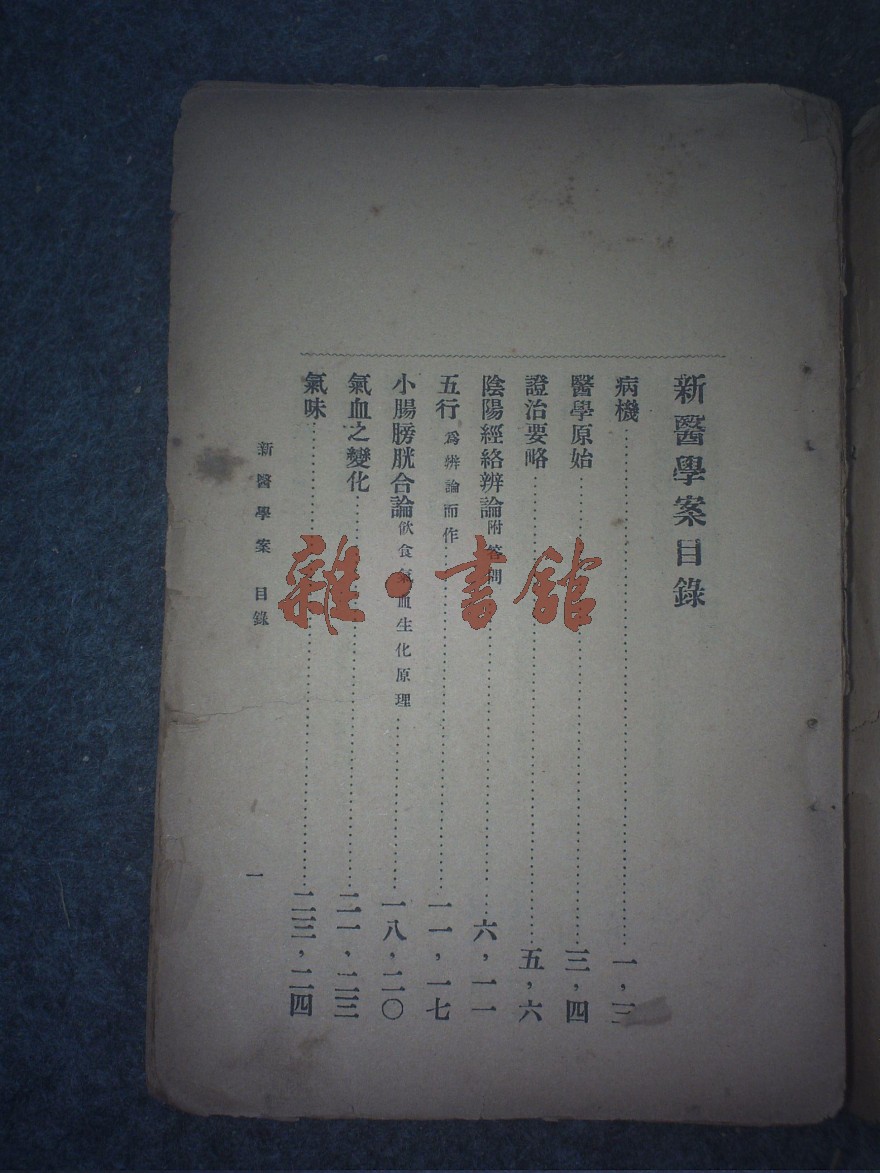 新醫學案目錄
病機……一,三
醫學原始……三,四
證治要略……五,六
陰陽經絡辨論附答問……六,一一
五行爲辨論而作……一一,一七
小腸膀胱合論飲食氣血生化原理……一八,二〇
氣血之變化……二一,二三
氣味……二三,二四
新醫學案 目錄
一
雜·書館